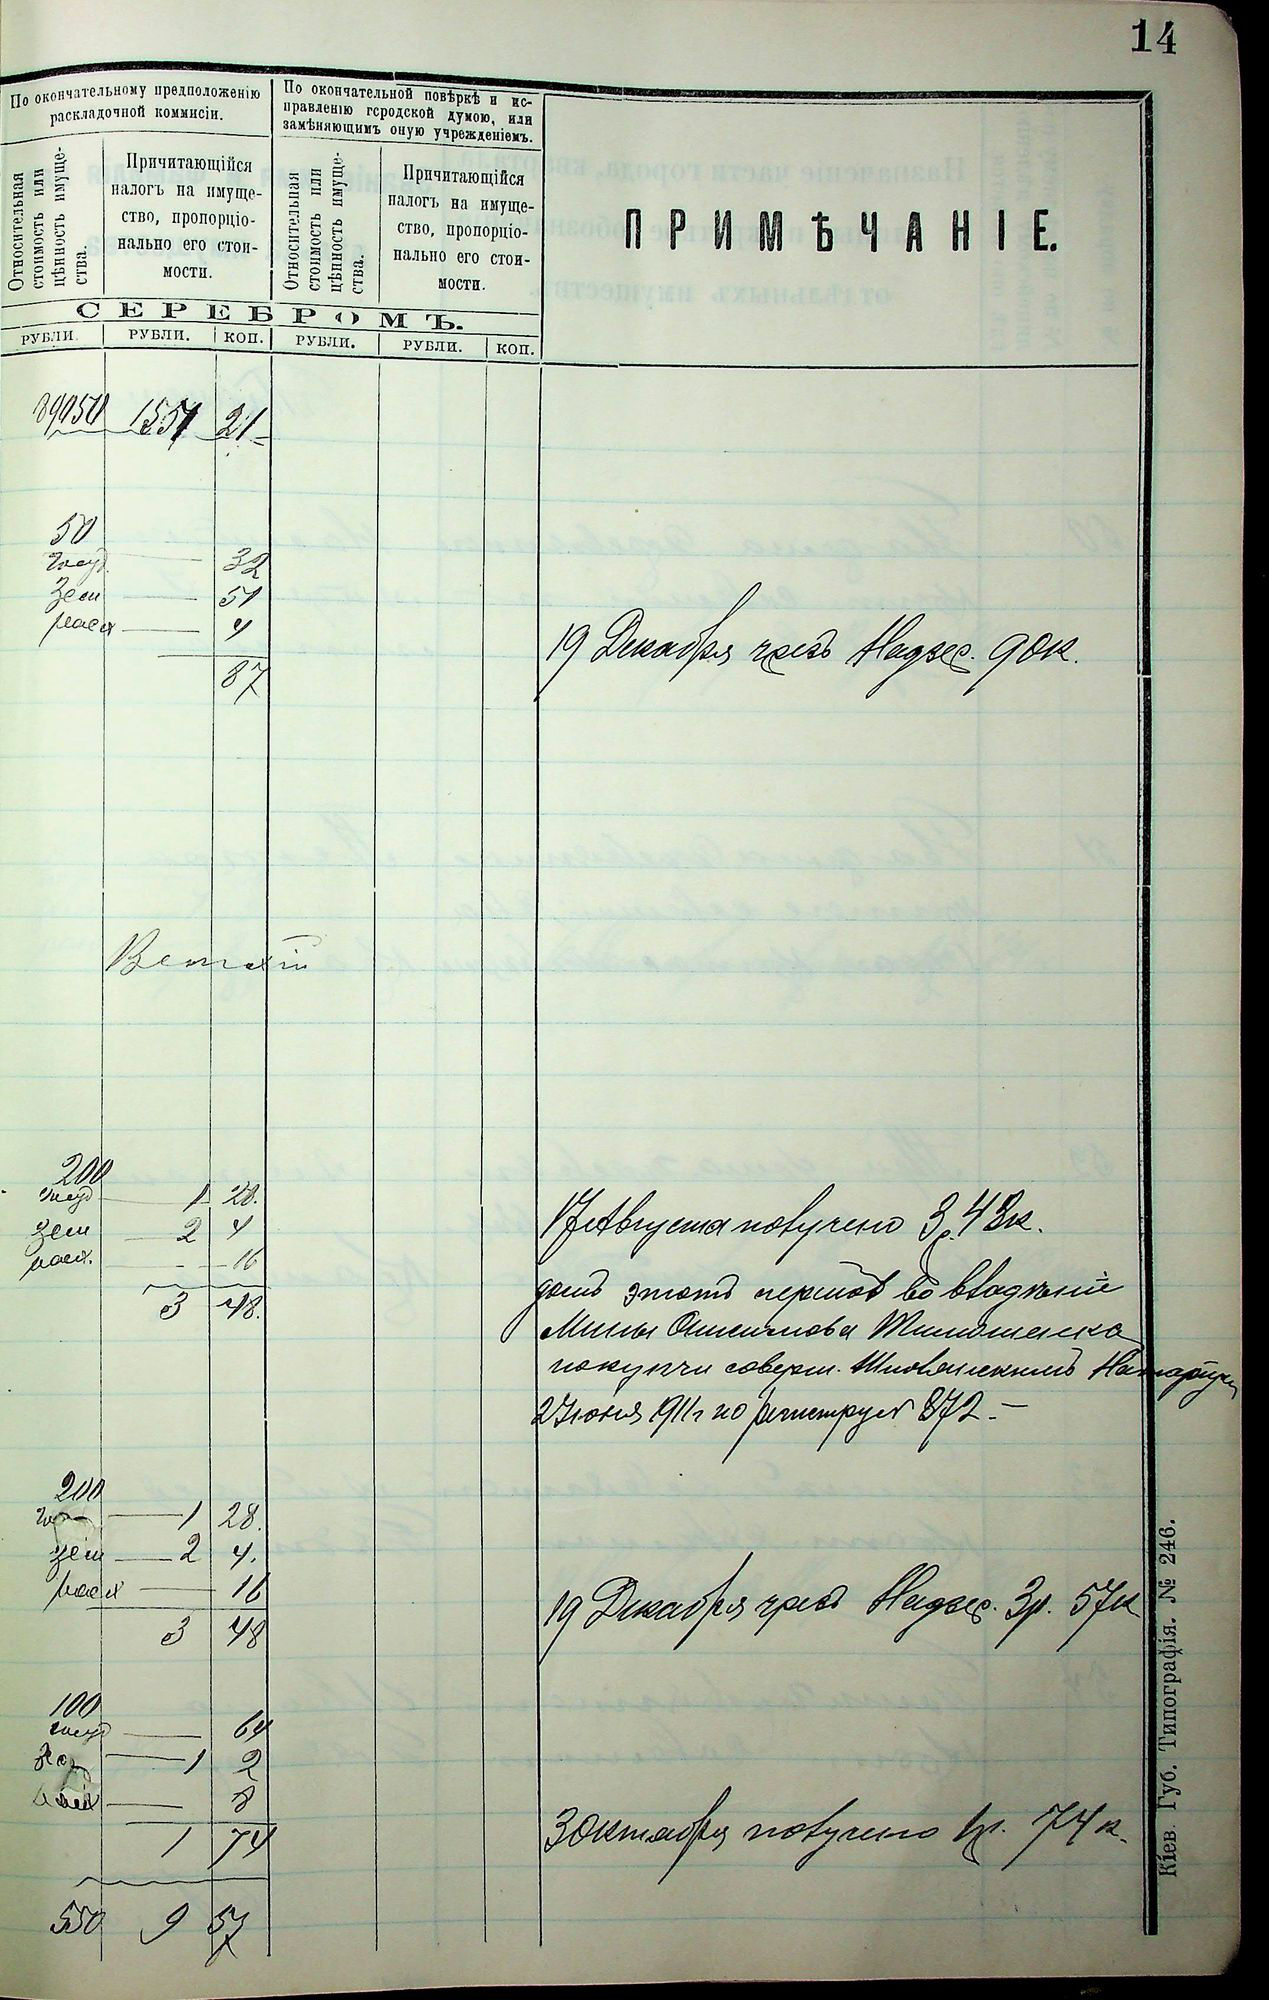 14
По окончательному предположенію
раскладочной коммисіи.
По окончательной повѣркѣ и ис-
правленію городской думою, или
замѣняющимъ оную учрежденіемъ.
Относительная
стоимость или
цѣнность имуще-
ства.
Причитающійся
налогъ на имуще-
ство, пропорціо-
нально его стои-
мости.
Относительная
стоимость или
цѣнность имуще-
ства.
Причитающійся
налогъ на имуще-
ство, пропорціо-
нально его стои-
мости.
ПРИМѢЧАНІЕ.
СЕРЕБРОМЪ.
РУБЛИ. РУБЛИ. КОП. РУБЛИ. РУБЛИ. КОП.
89050 1551 21
50
госуд. — 32
зем — 51
расх — 4
19 Декабря чрезъ Надзес. 90к.
87
Ветхій
200
госуд — 1 28.
зем — 2 4
расх. — 16
17 Августа получено 3р. 48к.
3 48.
домъ этотъ перешолъ во владѣніе
Тимошенка
покупчи соверш. Нотаріусу
1911г по реестру № 872. —
200
— 1 28.
зем — 2 4.
расх — 16
19 Декабря чрезъ Надзес. 3р. 57к
3 48
100
госуд — 64
— 1 2
— 8
3 Октября получено 1р. 74к.
1 74
550 9 57
Кіев. Губ. Типографія. № 246.